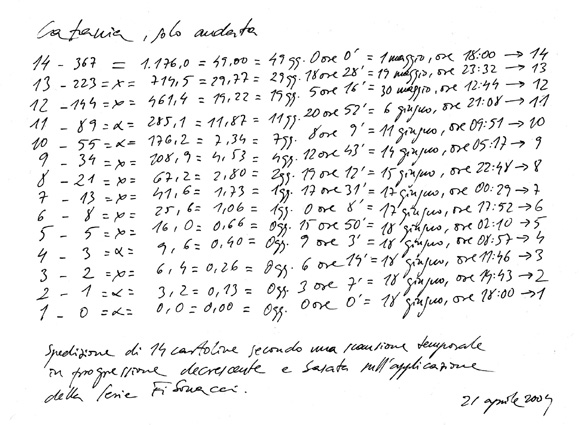 Catania, solo andata
14 - 367 = 1.176,0 = 49,00 = 49 gg. 0 ore 0' = 1 maggio, ore 18:00 → 14
13 - 223 = x = 714,5 = 29,77 = 29 gg. 18 ore 28' = 19 maggio, ore 23:32 → 13
12 - 144 = x = 461,4 = 19,22 = 19 gg. 5 ore 16' = 30 maggio, ore 12:44 → 12
11 - 89 = x = 285,1 = 11,87 = 11 gg. 20 ore 52' = 6 giugno, ore 21:08 → 11
10 - 55 = x = 176,2 = 7,34 = 7 gg. 8 ore 9' = 11 giugno, ore 09:51 → 10
9 - 34 = x = 108,9 = 4,53 = 4 gg. 12 ore 43' = 14 giugno, ore 05:17 → 9
8 - 21 = x = 67,2 = 2,80 = 2 gg. 19 ore 12' = 15 giugno, ore 22:48 → 8
7 - 13 = x = 41,6 = 1,73 = 1 gg. 17 ore 31' = 17 giugno, ore 00:29 → 7
6 - 8 = x = 25,6 = 1,06 = 1 gg. 0 ore 8' = 17 giugno, ore 17:52 → 6
5 - 5 = x = 16,0 = 0,66 = 0 gg. 15 ore 50' = 18 giugno, ore 02:10 → 5
4 - 3 = x = 9,6 = 0,40 = 0 gg. 9 ore 3' = 18 giugno, ore 08:57 → 4
3 - 2 = x = 6,4 = 0,26 = 0 gg. 6 ore 14' = 18 giugno, ore 11:46 → 3
2 - 1 = x = 3,2 = 0,13 = 0 gg. 3 ore 7' = 18 giugno, ore 14:43 → 2
1 - 0 = x = 0,0 = 0,00 = 0 gg. 0 ore 0' = 18 giugno, ore 18:00 → 1
Spedizione di 14 cartoline secondo una scansione temporale
in progressione decrescente e basata sull'applicazione
della serie Fibonacci.
21 aprile 2004